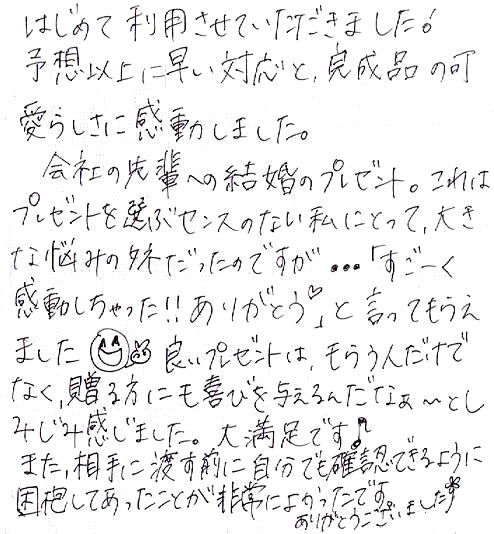 はじめて利用させていただきました!
予想以上に早い対応と、完成品の可
愛らしさに感動しました。
会社の先輩への結婚のプレゼント。これは
プレゼントを選ぶセンスのない私にとって、大き
な悩みの外だったのですが…「すごーく
感動しちゃった!!ありがとう♡」と言ってもらえ
ました 良いプレゼントは、もらう人だけで
なく、贈る方にも喜びを与えるんだなぁ〜とし
みじみ感じました。大満足です♪
また、相手に渡す前に自分でも確認できるように
困枹してあったことが非常によかったです
ありがとうございました